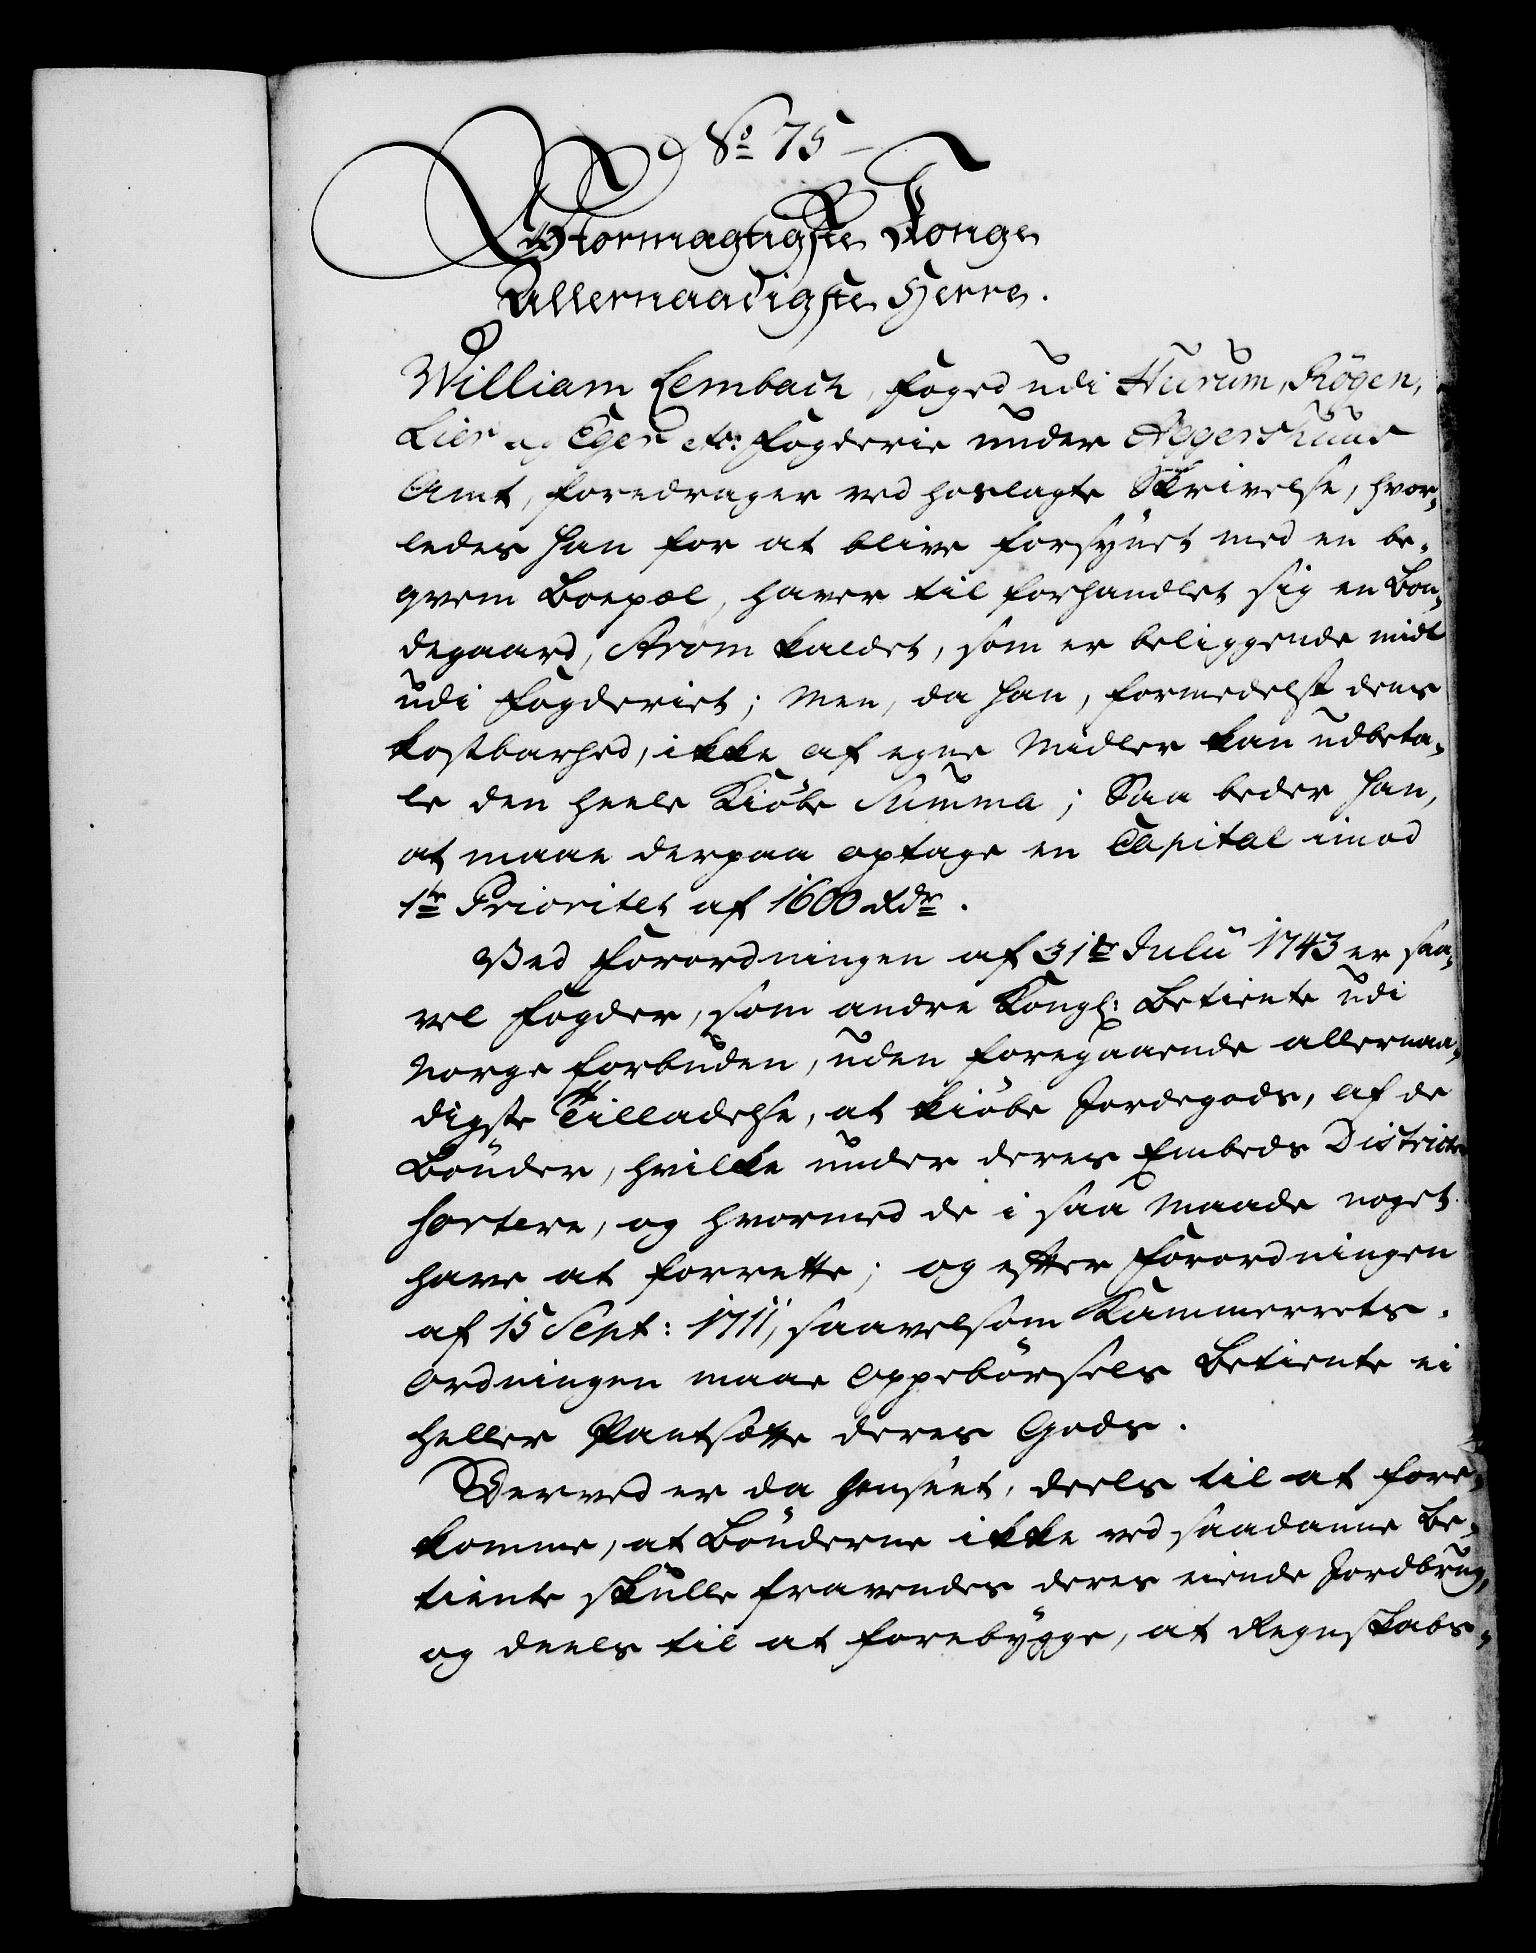 No 75
Stormægtigste Konge
Allernaadigste Herre.
William Lembach, Foged udi Hurum, Rögen,
Lier og Eger etc: Fogderie under Aggershuus
Amt, foredrager ved hoslagte Skrivelse, hvor-
ledes han for at blive forsÿnet med en be-
qvem Boepæl, haver til forhandlet sig en Bon-
degaard, Strøm kaldet, som er beliggende midt
udi Fogderiet; Men, da han, formedelst dens
Kostbarhed, ikke af egne Midler kan udbeta-
le den heele Kiöbe Summa; Saa beder han,
at maae derpaa optage en Capital imod
1te Prioritet af 1600 Rdr.
Ved Forordningen af 31te Julii 1743 er saa-
vel Fogder, som andre Kongl: Betiente udi
Norge forbuden, uden foregaaende allernaa-
digste Tilladelse, at kiöbe Jordegods, af de
Bönder, hvilke under deres Embeds Districter
sortere, og hvormed de i saa Maade noget
have at forrette; og efter Forordningen
af 15 Sept: 1711, saavelsom Kammerrets-
Ordningen maae Oppebörsels Betiente ei
heller Pantsætte deres Gods.
Derved er da henseet, deels til at fore-
komme, at Bönderne ikke ved saadanne Be-
tiente skulle fravendes deres eiende Jordbrug,
og deels til at forebÿgge, at Regnskabs-